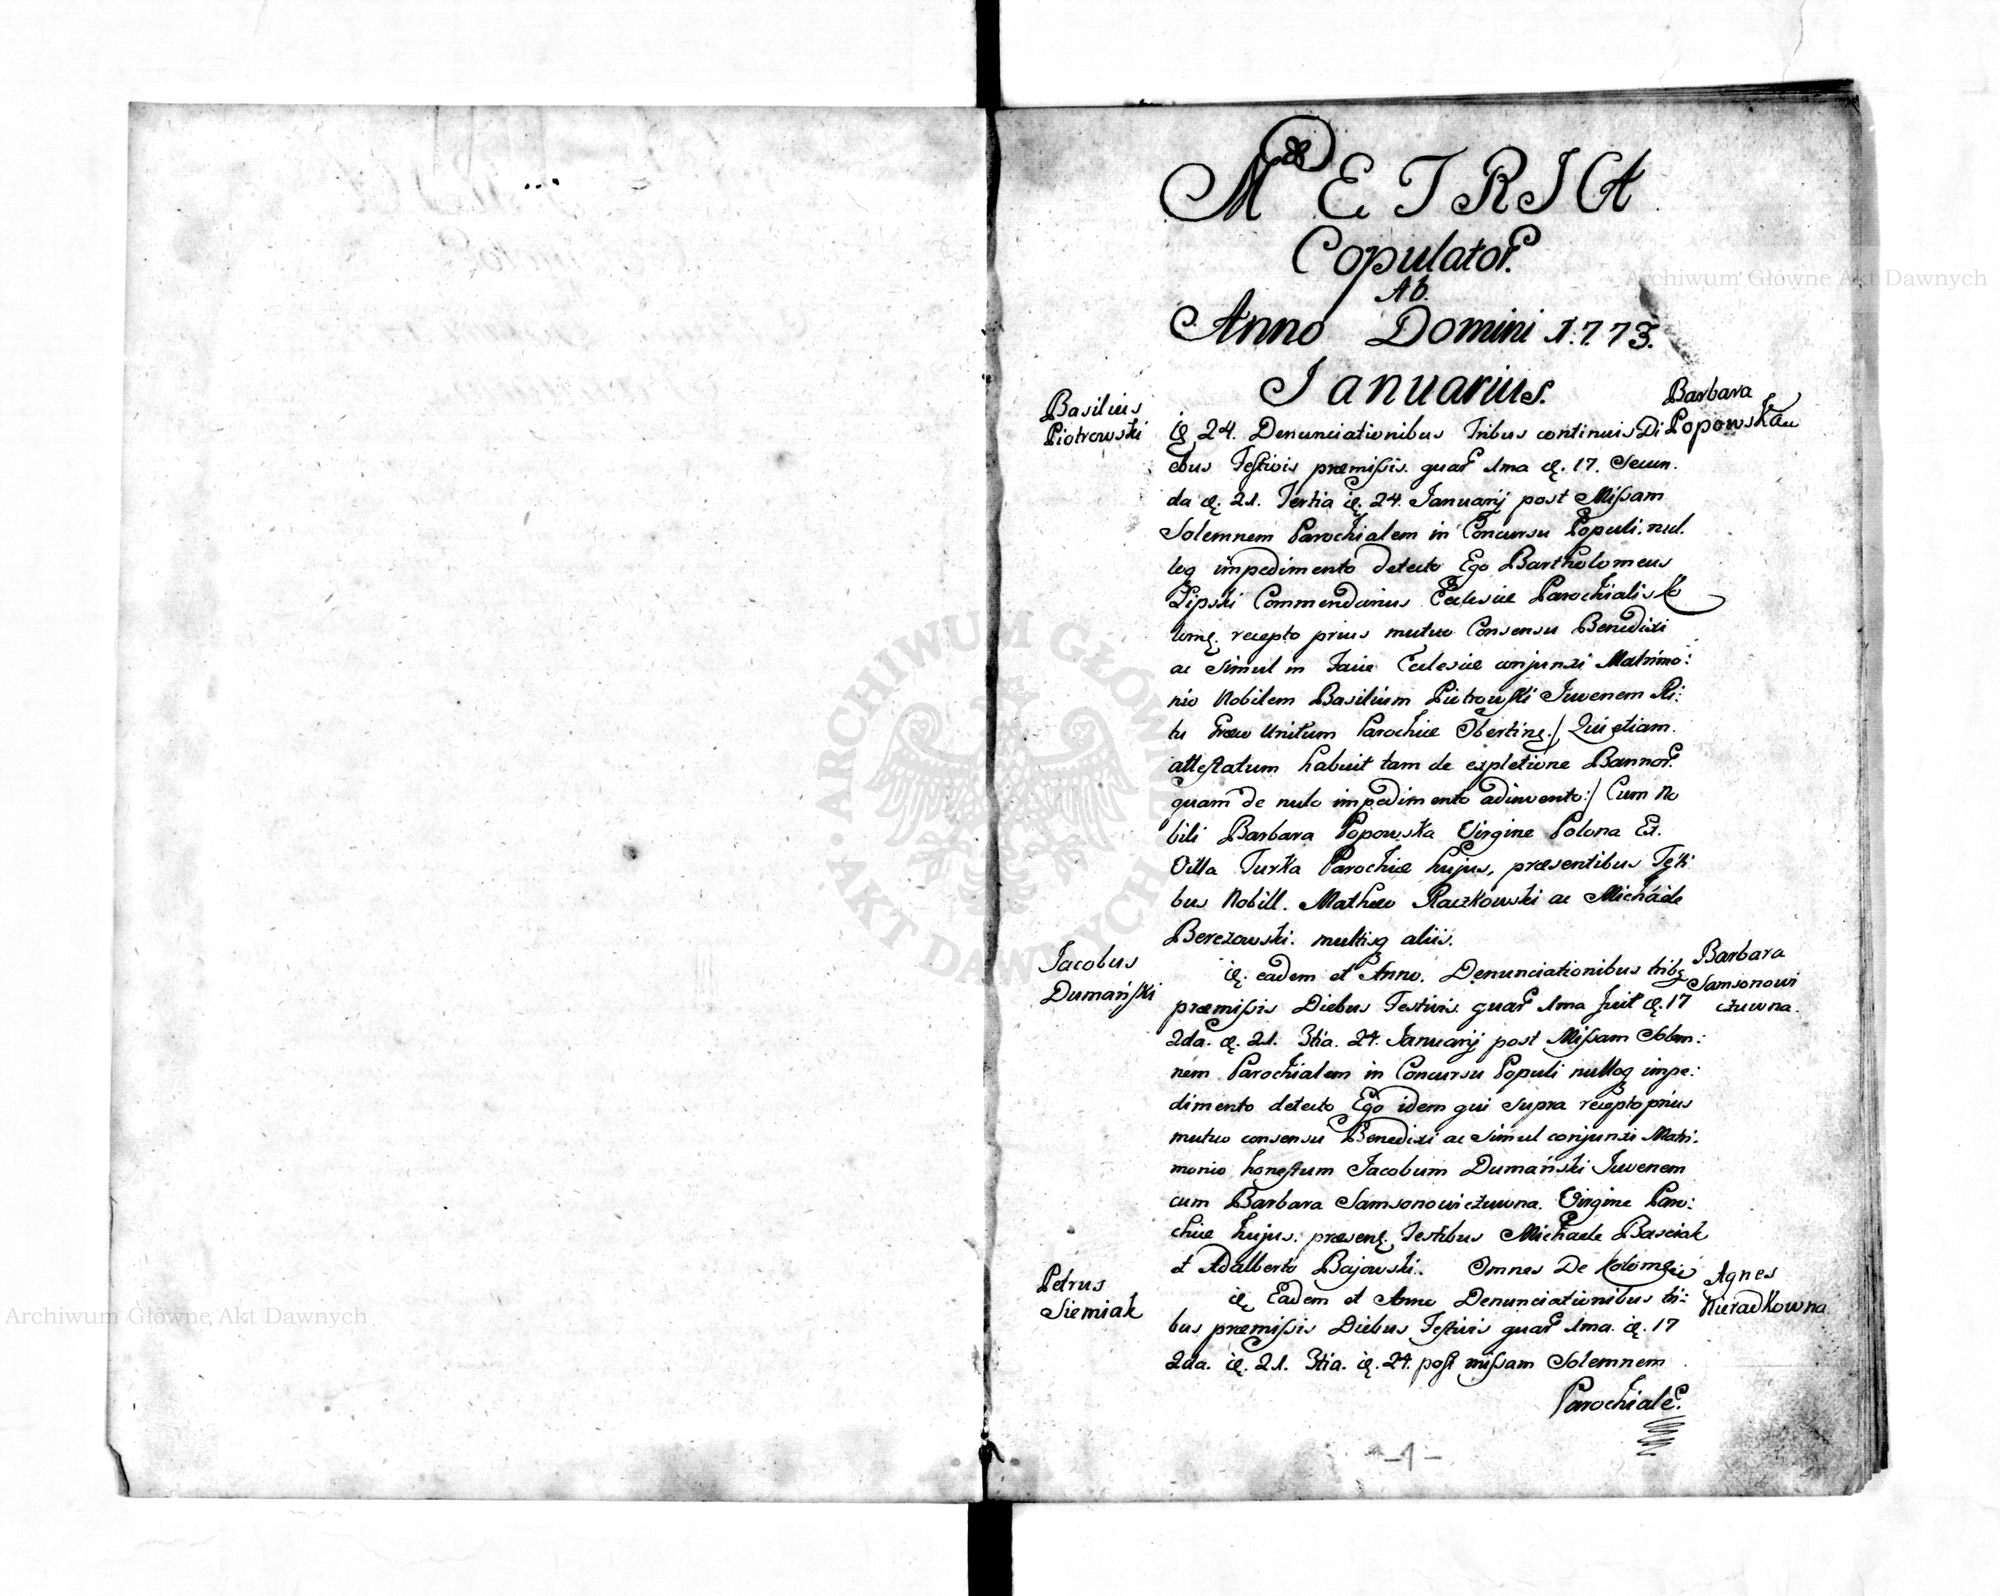 METRICA
Copulator.
Ab.
Anno Domini 1.7.73.
Januarius.
Basilius
Piotrowski
Barbara
Popowska
24. Denunciationibus Tribus continuis Di
ebus Festivis præmissis. quar 1ma 17. Secun.
da 21. Tertia 24. Januarij post Missam
Solemnem Parochialem in Concursu Populi. nul.
loq impedimento detecto Ego Bartholomeus
Lipski Commendarius Ecclesiæ Parochialis Co
lom. recepto prius mutuo Consensu Benedixi
ac simul in facie Ecclesiæ conjunxi Matrimo:
nio Nobilem Basilium Piotrowski Juvenem Ri:
tu Græco Unitum Parochiæ Obertin./ Qui etiam.
attestatum habuit tam de expletione Bannor.
quam de nulo impedimento adinvento:/ Cum No
bili Barbara Popowska Virgine Polona Ex.
Villa Turka Parochiæ hujus, præsentibus Testi
bus Nobill. Mathæo Raczkowski ac Michaele
Berezowski. multisq aliis.
Jacobus
Dumański
Barbara
Samsonowi
czuwna.
eadem et Anno. Denunciationibus trib
præmissis Diebus Festivis. quar 1ma fuit 17
2da. 21. 3tia. 24. Januarij post Missam Solem:
nem Parochialem in Concursu Populi nulloq impe:
dimento detecto Ego idem qui supra recepto prius
mutuo consensu Benedixi ac simul conjunxi Matri.
monio honestum Jacobum Dumański Juvenem
cum Barbara Samsonowiczuwna. Virgine Paro:
chiæ hujus. præsen. Testibus Michaele Basciak
et Adalberto Bajowski. Omnes De
Petrus
Siemiak
Agnes
Nieradkowna
Eadem et Anno Denunciationibus tri:
bus præmissis Diebus Festivis quar 1ma. 17
2da. 21. 3tia. 24. post missam Solemnem
Parochiale.
-1-
ARCHIWUM GŁÓWNE AKT DAWNYCH
Archiwum Główne Akt Dawnych
Archiwum Główne Akt Dawnych